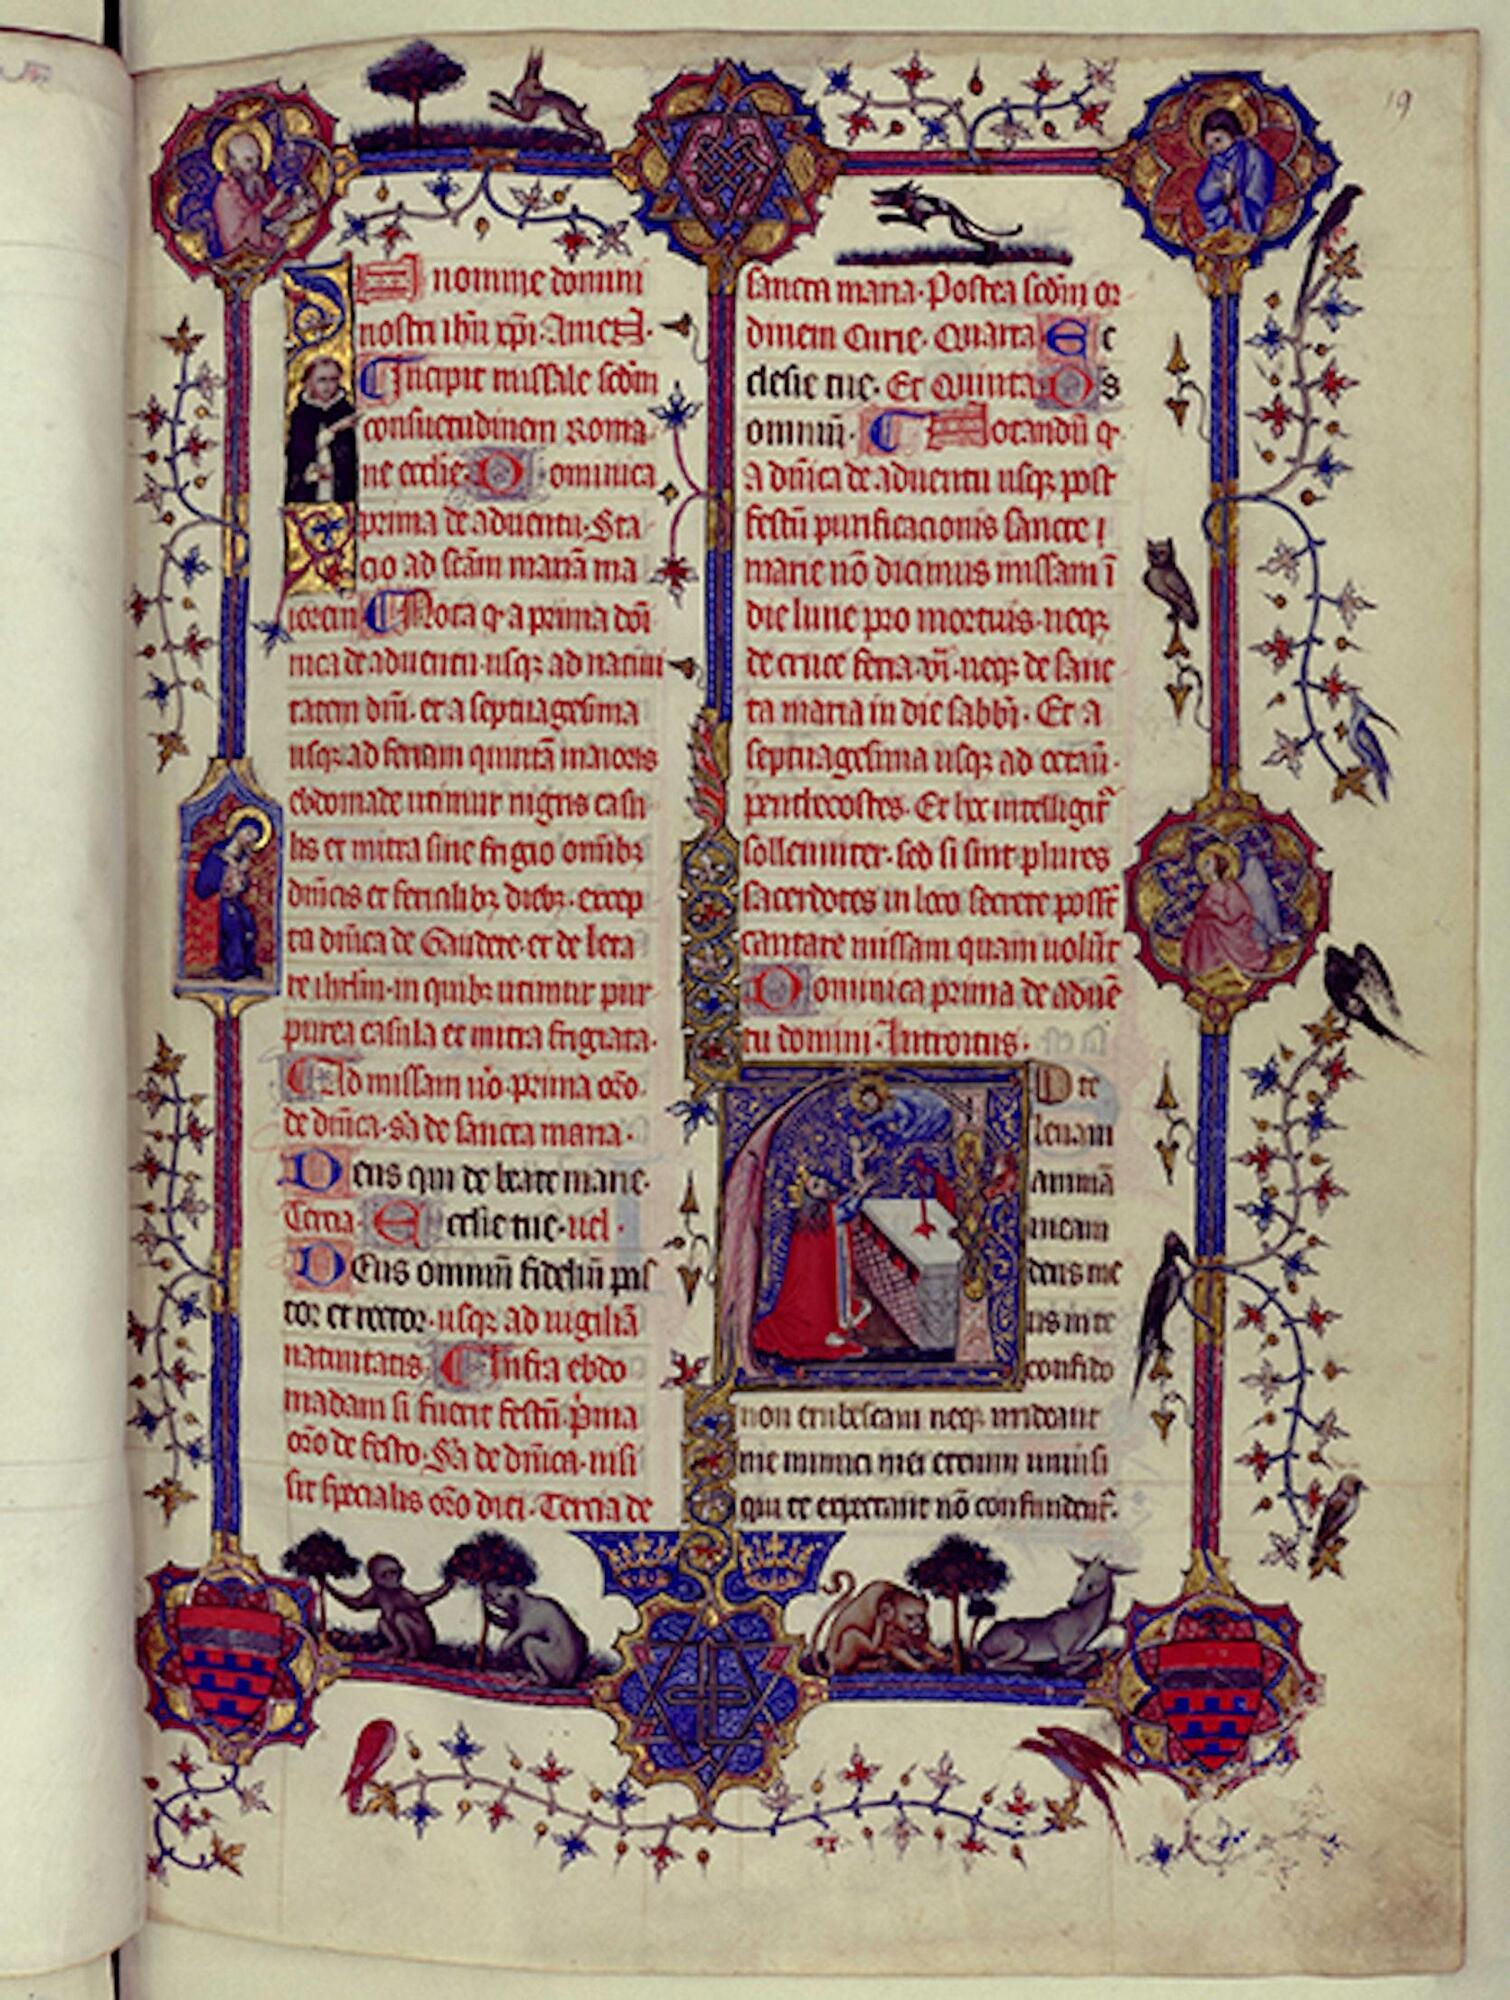 19
In nomine domini
nostri ihu xpi. Amen.
Incipit missale scdm
consuetudinem Roma
ne ecclie. Dominica
prima de aduentu. Sta
cio ad scam maria ma
iorem Nota q a prima dni
nica de aduentu usq ad natiui
tatem dni. et a septuagesima
usq ad feriam quinta maioris
ebdomade utimur nigris casu
lis et mitra sine frigio omib
dnicis et ferialib dieb. excep
ta dnica de Gaudete. et de leta
re ihrlm. in quib utimur pur
purea casula et mitra frigiata.
Ad missam uo. prima oro.
de dnica. sa de sancta maria.
Deus qui de beate marie.
Tercia. Ecclesie tue. uel.
Deus omniu fideliu pas
tor et rector. usq ad uigilia
natiuitatis. Infra ebdo
madam si fuerit festu. pma
oro de festo. Sa de dnica. nisi
sit specialis oro dici. Tercia de
sancta maria. Postea scdm or
dinem Curie. Quarta Ec
clesie tue. Et Quinta Ds
omniu. Notandu q
a dnica de aduentu usq post
festu purificacionis sancte
marie no dicimus missam i
die lune pro mortuis. neq
de cruce feria. vi. neq de sanc
ta maria in die sabbi. Et a
septuagesima usq ad octau.
penthecostes. Et hec intelligit
sollenniter. sed si sint plures
sacerdotes in loco secrete posst
cantare missam quam uolut
Dominica prima de adue
tu domini. Introitus.
D te
leuaui
anima
meam
deus me
us in te
confido
non erubescam neq irrideant
me inimici mei etenim uniuersi
qui te expectant no confundent.